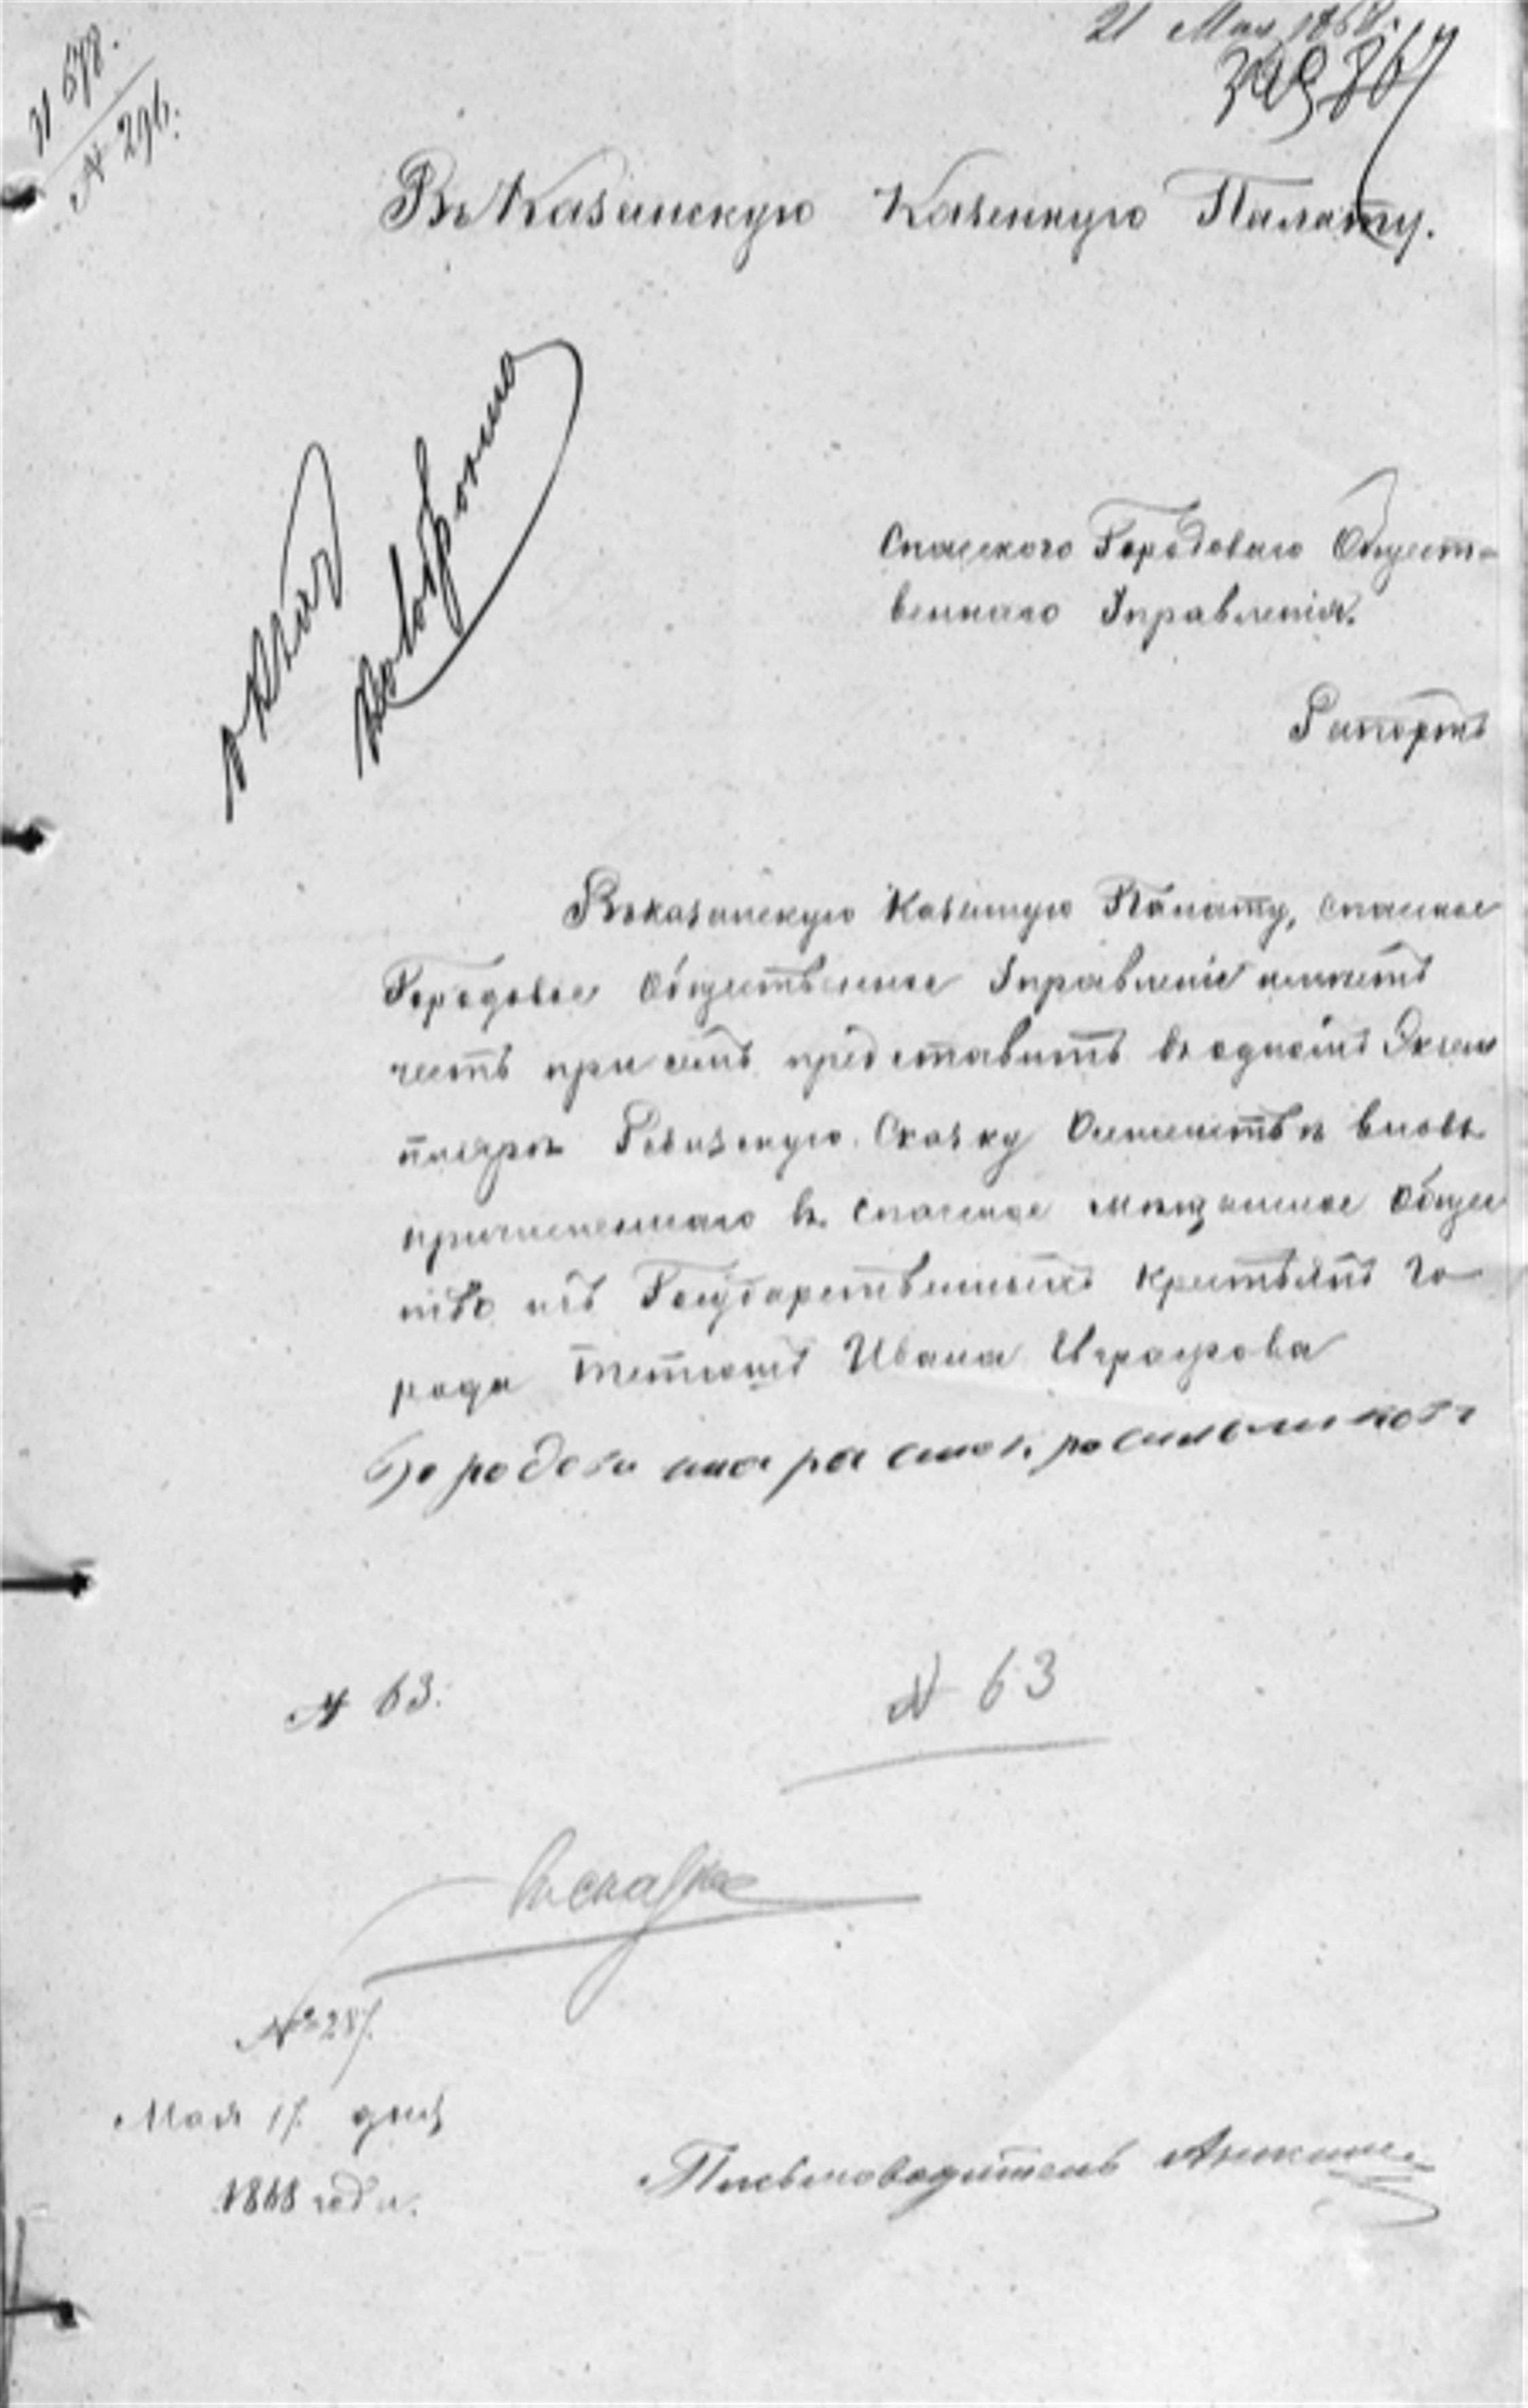 21 Мая 1868.
N 678.
N 296.
Въ Казанскую Казенную Палату.
Спасскаго Городоваго Общест-
веннаго Управленія.
Рапортъ
Въ казанскую Казенную Палату, спаское
Городовое Общественное Управленіе имѣетъ
честь при семъ представить въ одномъ Экзем
плярѣ Ревизскую Сказку О семействѣ вновь
причисленнаго въ спаское мѣщанское Общес
тво изъ Государственныхъ крестьянъ го
рода Тетюшъ Ивана
Городской староста
N 63.
N 63
N 287.
Мая 17. дня
1868 года.
Письмоводитель